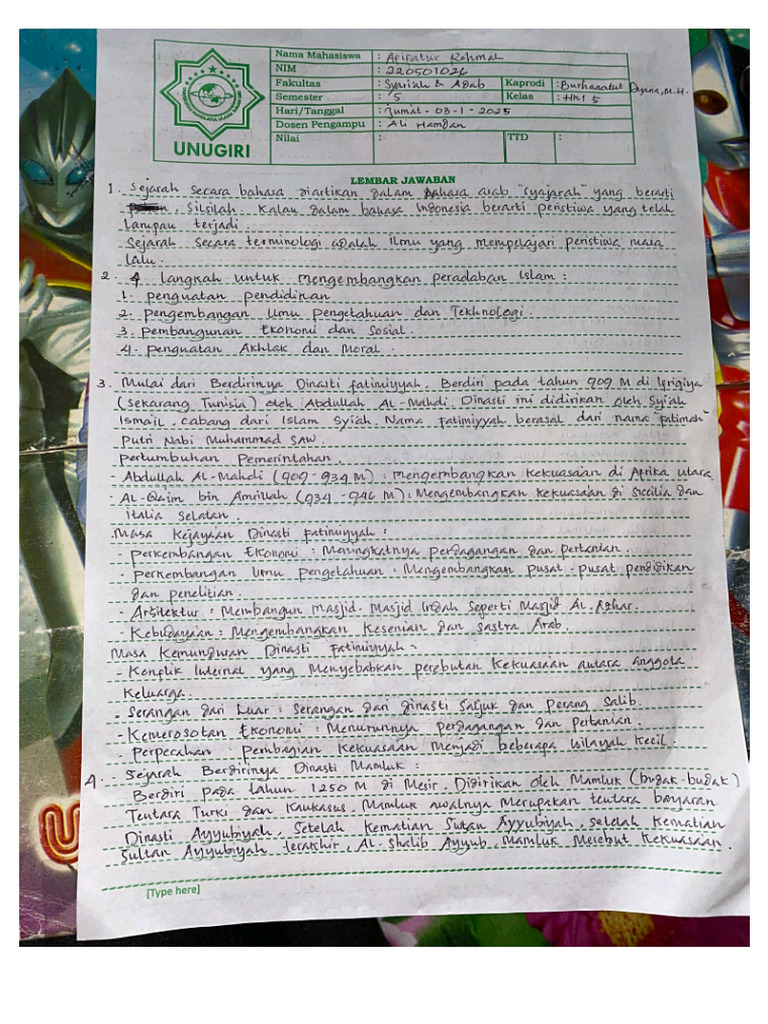 UNUGIRI
Nama Mahasiswa : Afifatur Rohmah
NIM : 220501026
Fakultas : Syariah & Adab Kaprodi : Burhanatut Dyana, M.H.
Semester : 5 Kelas : HKI 5
Hari/Tanggal : Jumat - 03-1-2025
Dosen Pengampu : Ali Hamdan
Nilai : TTD :
LEMBAR JAWABAN
1. Sejarah secara bahasa diartikan dalam bahasa arab "syajarah" yang berarti
, silsilah. Kalau dalam bahasa Indonesia berarti peristiwa yang telah
lampau terjadi.
Sejarah secara terminologi adalah ilmu yang mempelajari peristiwa masa
lalu.
2. 4 langkah untuk mengembangkan peradaban Islam :
1. penguatan pendidikan
2. pengembangan Ilmu pengetahuan dan Tekhnologi.
3. pembangunan Ekonomi dan Sosial.
4. penguatan Akhlak dan Moral.
3. Mulai dari Berdirinya Dinasti fatimiyyah. Berdiri pada tahun 909 M di Ifriqiya
(sekarang Tunisia) oleh Abdullah AL-Mahdi. Dinasti ini didirikan oleh Syi'ah
Ismail, cabang dari Islam Syi'ah. Nama Fatimiyyah berasal dari nama "fatimah"
Putri Nabi Muhammad SAW.
Pertumbuhan Pemerintahan.
- Abdullah AL-Mahdi (909-934 M) : mengembangkan kekuasaan di Afrika utara
- AL-Qaim bin Amrillah (934-946 M) : Mengembangkan kekuasaan di Sicilia dan
italia selatan.
Masa Kejayaan Dinasti Fatimiyyah :
- perkembangan Ekonomi : Meningkatnya perdagangan dan pertanian.
- perkembangan Ilmu pengetahuan : Mengembangkan pusat-pusat pendidikan
dan penelitian.
- Arsitektur : Membangun masjid-Masjid indah seperti Masjid AL-Azhar.
- Kebudayaan : Mengembangkan Kesenian dan sastra Arab.
Masa Kemunduran Dinasti Fatimiyyah :
- Konflik Internal yang Menyebabkan perebutan kekuasaan antara anggota
keluarga.
- Serangan dari Luar : serangan dari dinasti Saljuk dan perang Salib.
- Kemerosotan Ekonomi : Menurunnya perdagangan dan Pertanian.
- Perpecahan : pembagian Kekuasaan Menjadi beberapa wilayah Kecil.
4. Sejarah Berdirinya Dinasti Mamluk :
Berdiri pada tahun 1250 M di Mesir. Didirikan oleh Mamluk (budak-budak)
Tentara Turki dan Kaukasus. Mamluk awalnya Merupakan tentara bayaran
Dinasti Ayyubiyah, Setelah Kematian Sutan Ayyubiyah, setelah Kematian
Sultan Ayyubiyah terakhir, AL-Shalib Ayyub, Mamluk Merebut Kekuasaan.
[Type here]